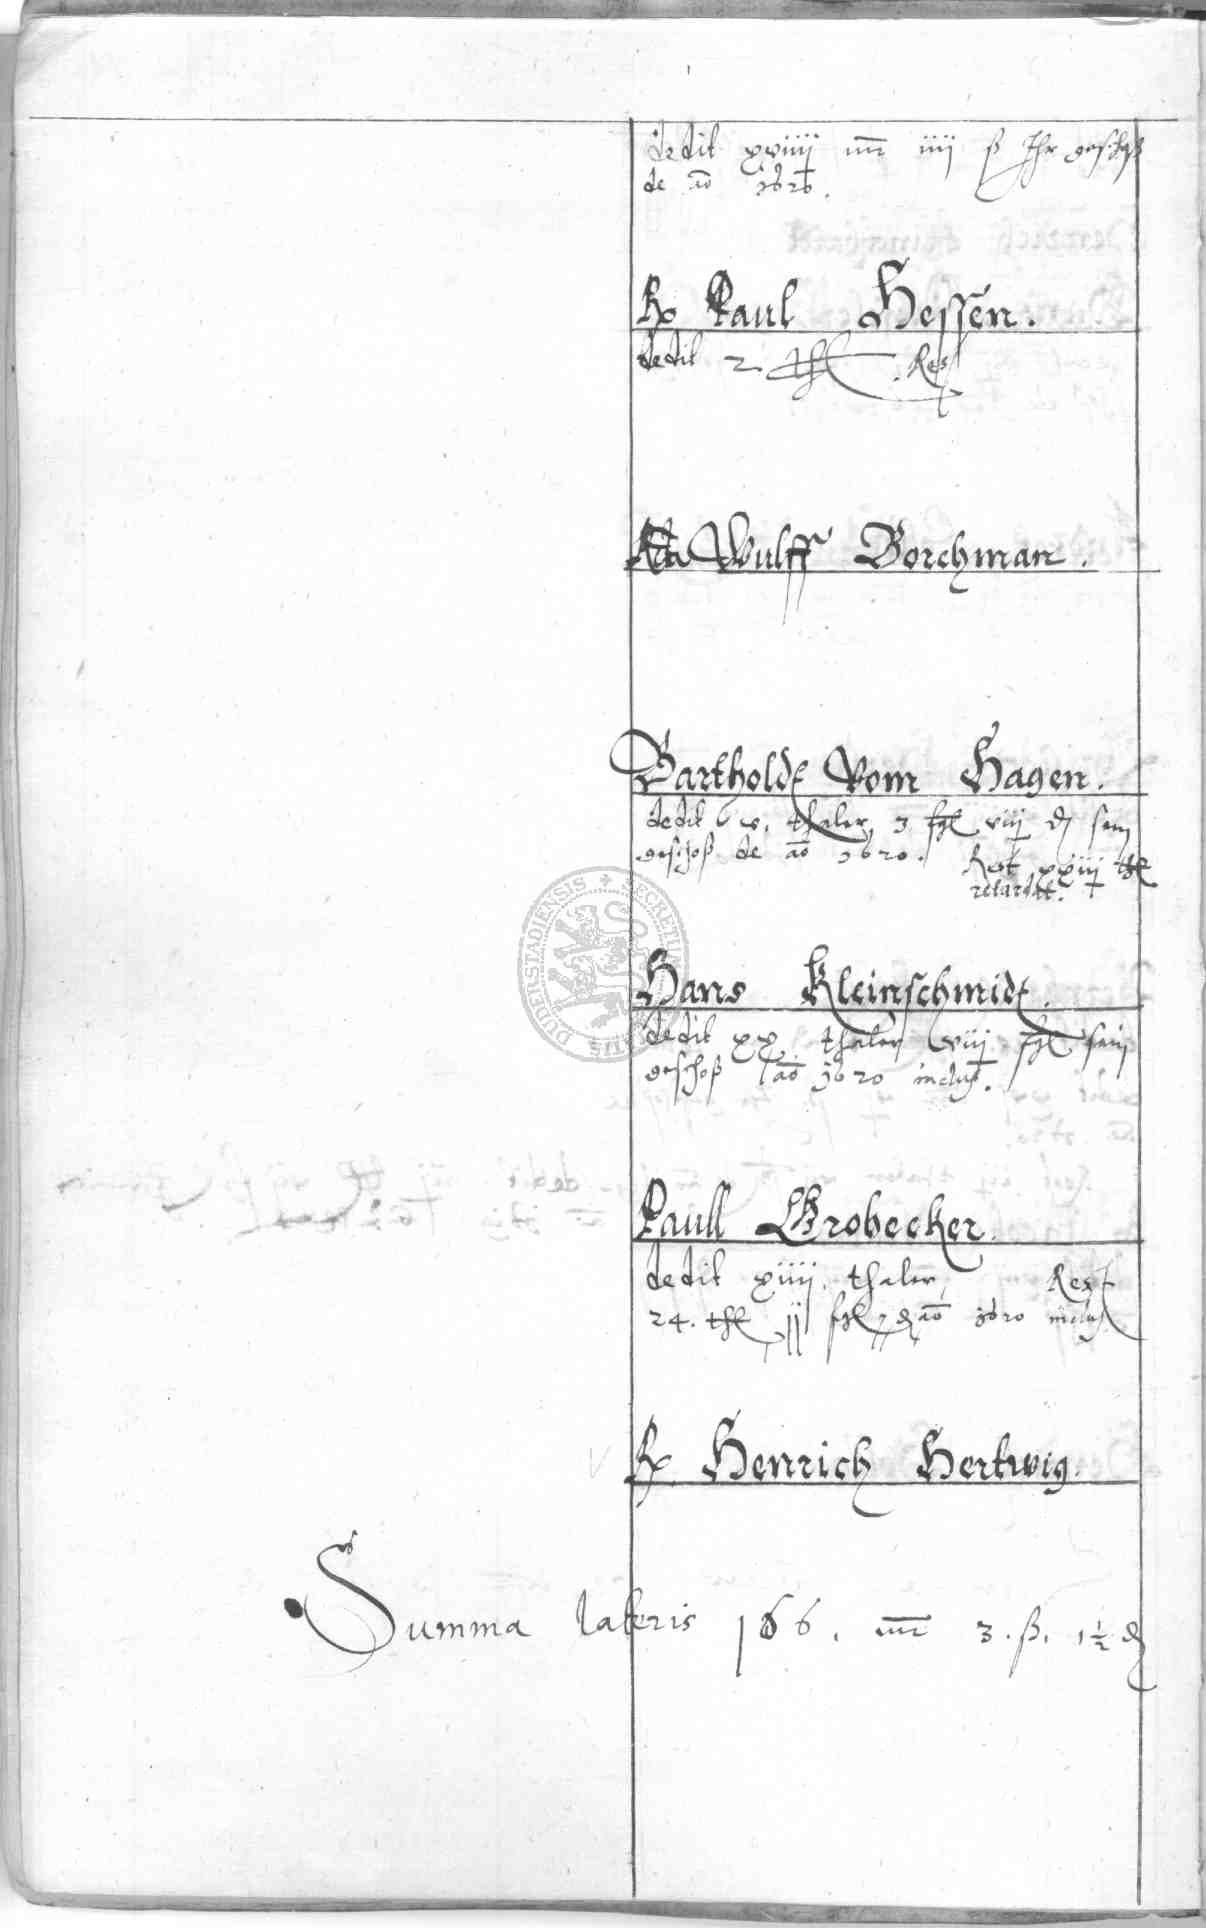 dedit xviiij mr iiij ß Ihr geschoß
de ao 1620.
Paul Hessen.
dedit 2. thl Rest
Wulff Borchman.
Bartholdt Vom Hagen.
dedit v. thaler 3 fgl viiij d sein
geschoß de ao 1620. Rest xxiij thl
retardat.
Hans Kleinschmidt.
dedit xx thaler viij fgl sein
geschoß ao 1620 inclus.
Paull Grobecker.
dedit xiiij. thaler, Rest
24. thl ij fgl 7 d ao 1620 inclus
Henrich Hertwig.
Summa lateris 166. mr 3. ß. 1½ d
DUDERSTADIENSIS SECRETUM